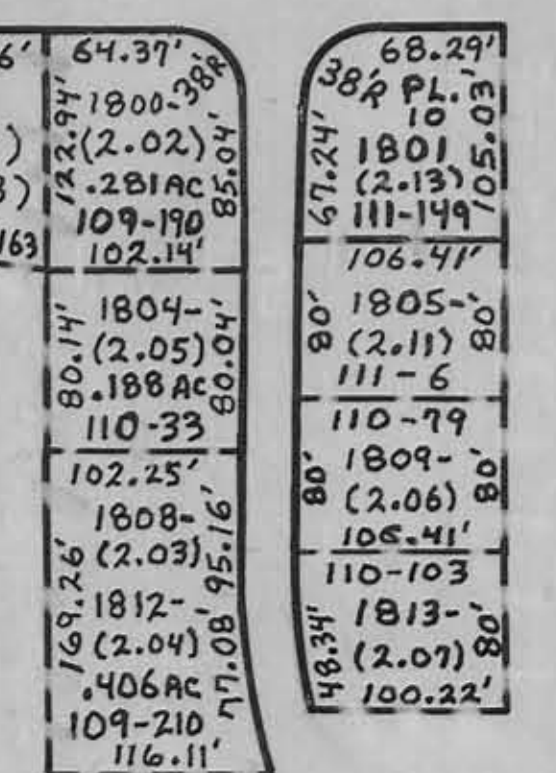 6'
)
3)
163
64.37'
38'R
122.94'
1800-
(2.02)
.281AC
85.04'
109-190
102.14'
80.14'
1804-
(2.05)
.188 AC
80.04'
110-33
102.25'
1808-
(2.03)
95.16'
169.26'
1812-
(2.04)
.406AC
77.08'
109-210
116.11'
68.29'
38'R
PL.
10
105.03'
67.24'
1801
(2.13)
111-149
106.41'
80'
1805-
(2.11)
80'
111-6
110-79
80'
1809-
(2.06)
80'
106.41'
110-103
48.34'
1813-
(2.07)
80'
100.22'